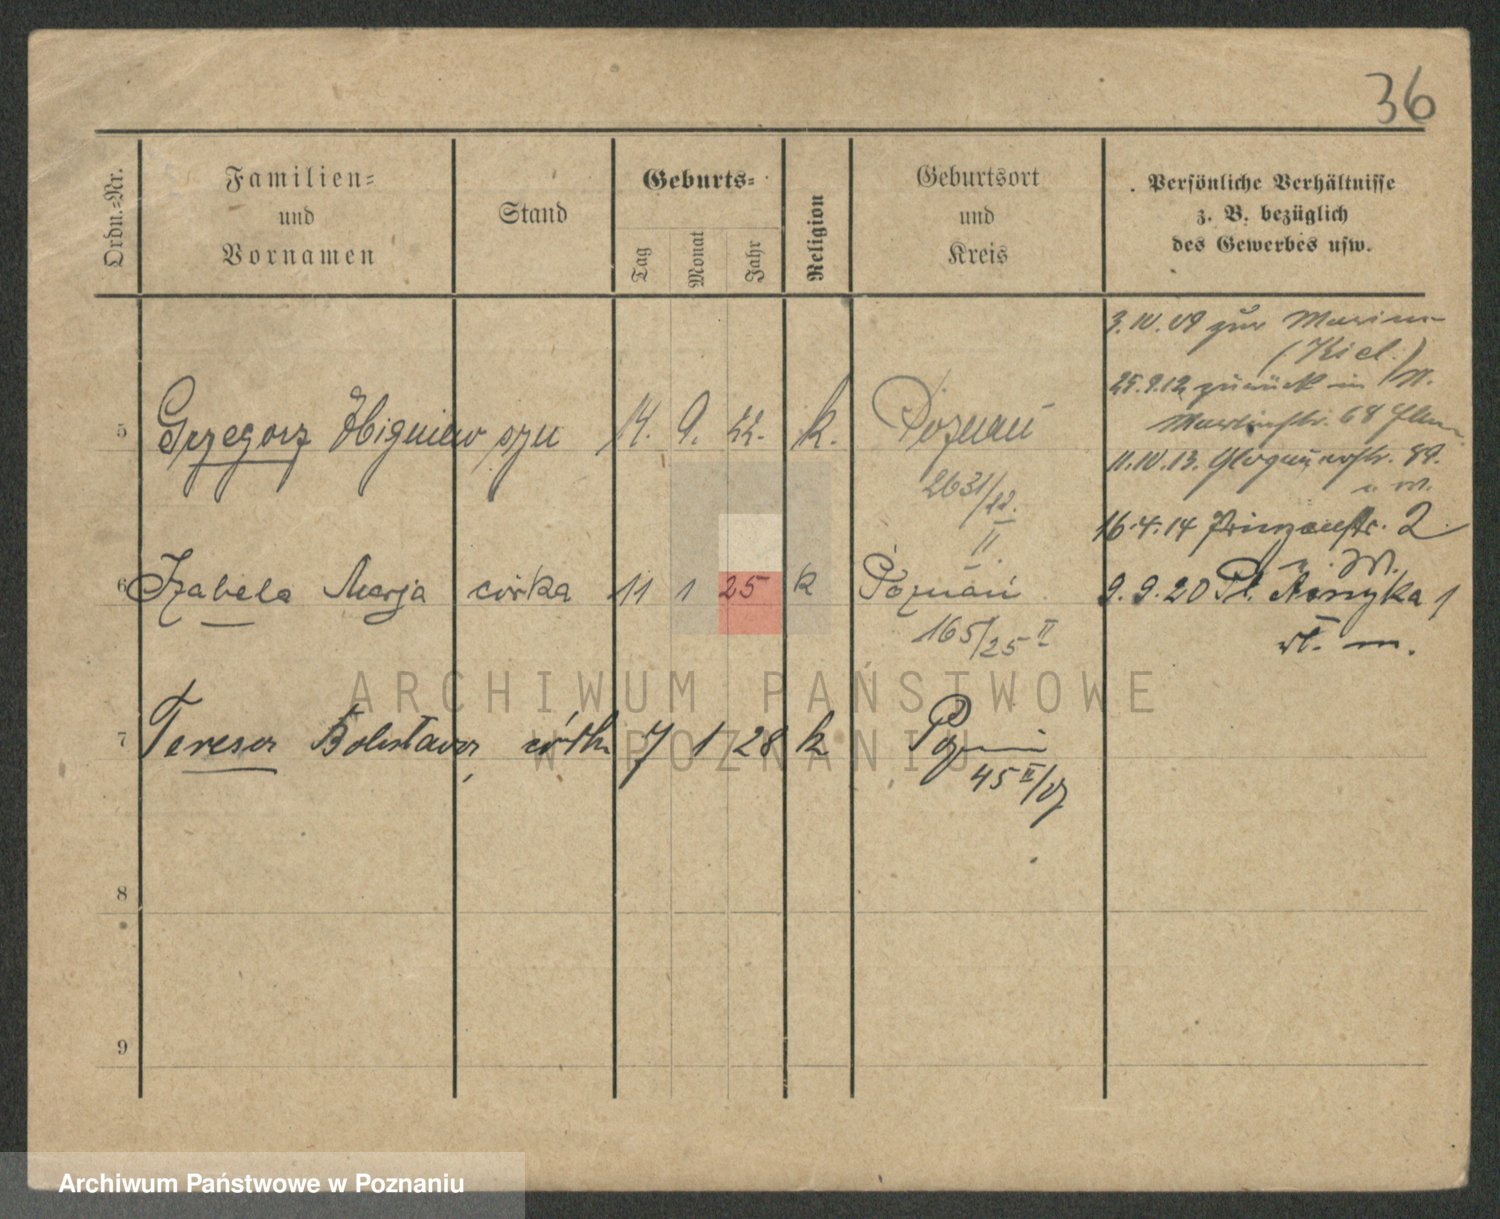 36
Ordn.-Nr.
Familien-
und
Vornamen
Stand
Geburts-
Tag
Monat
Jahr
Religion
Geburtsort
und
Kreis
Persönliche Verhältnisse
z. B. bezüglich
des Gewerbes usw.
3.IV.09 zur Marine
(Kiel)
25.9.12 zurück in
68
5 Grzegorz Zbigniew syn 14. 9. 22. k. Poznań
2631/22.
II.
11.IV.13. Glogauerstr. 89.
16.4.14 Prinzenstr. 2
u. M.
6 Izabela Marja córka 11 1 25 k Poznań
165/25 II
9.9.20 Pl. Asnyka 1
7 Teresa Bolesława córka 7 1 28 k
45 II/
8
9
ARCHIWUM PAŃSTWOWE
W POZNANIU
Archiwum Państwowe w Poznaniu